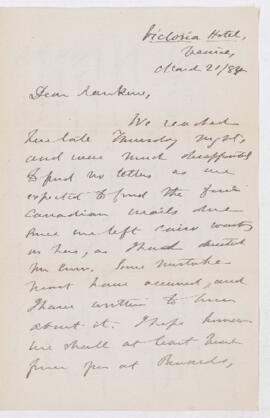 Victoria Hotel,
Venice,
March 21/84
Dear
We reached
here late Thursday night,
and were much disappointed
to find no letters as we
expected to find the
Canadian mails due
since we left Cairo
us here, as I had directed
Mr Some mistake
must have occurred, and
I have written to him
about it. I hope however
we shall at least hear
from you at